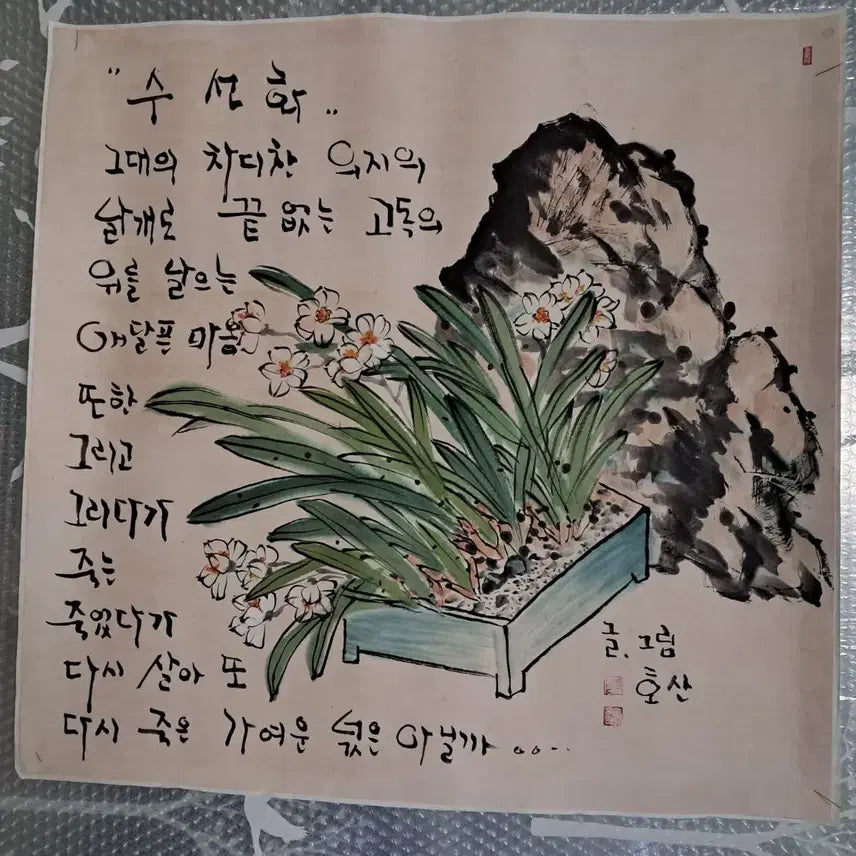 "수선화"
그대의 차디찬 의지의
날개로 끝없는 고독의
위를 날으는
애달픈 마음
또한
그리고
그리다가
죽는
죽었다가
다시 살아 또
다시 죽은 가여운 넋은 아닐까 ....
글, 그림
호산